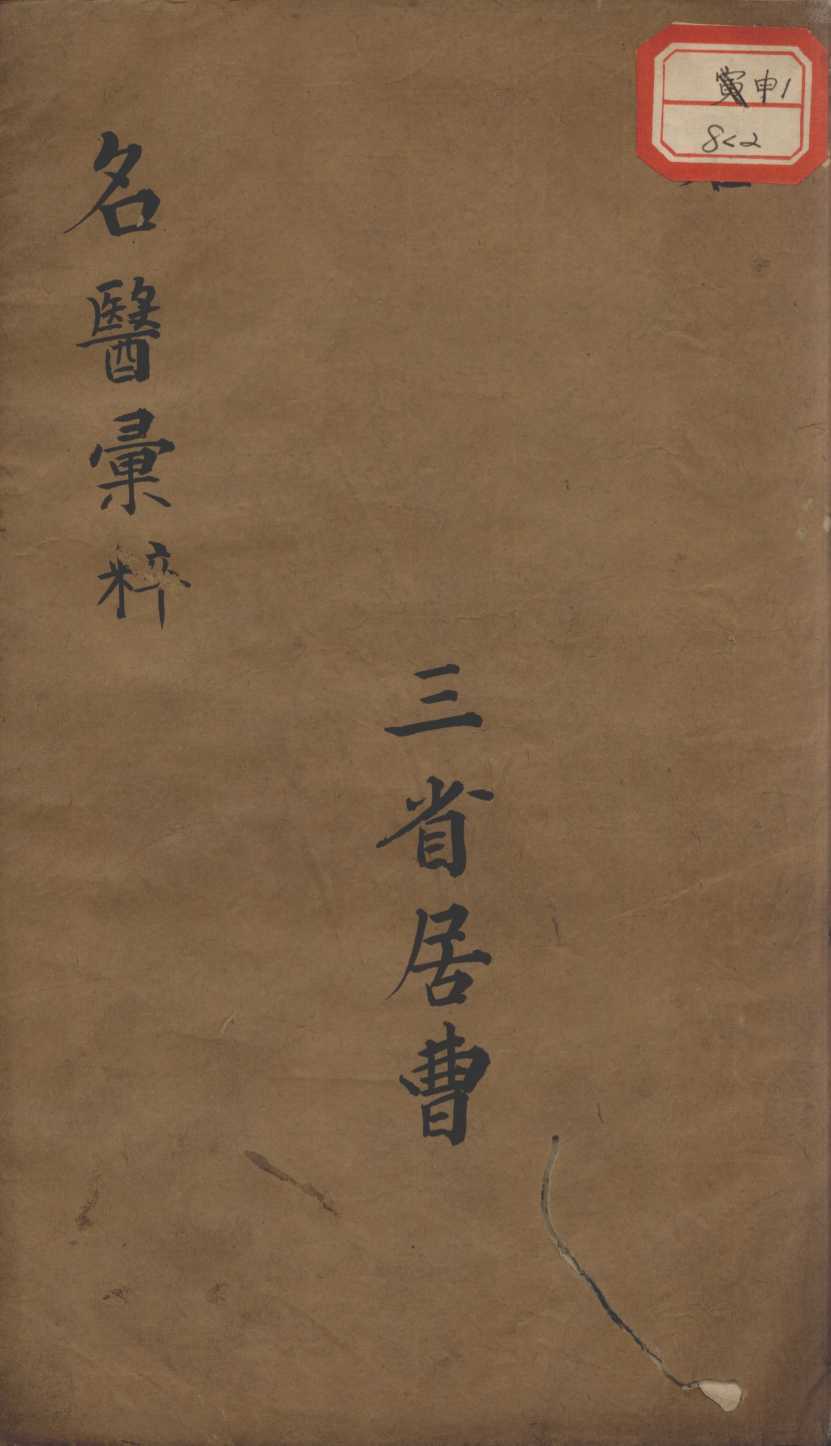 申1
8<2
三省居曹
名醫彙粹